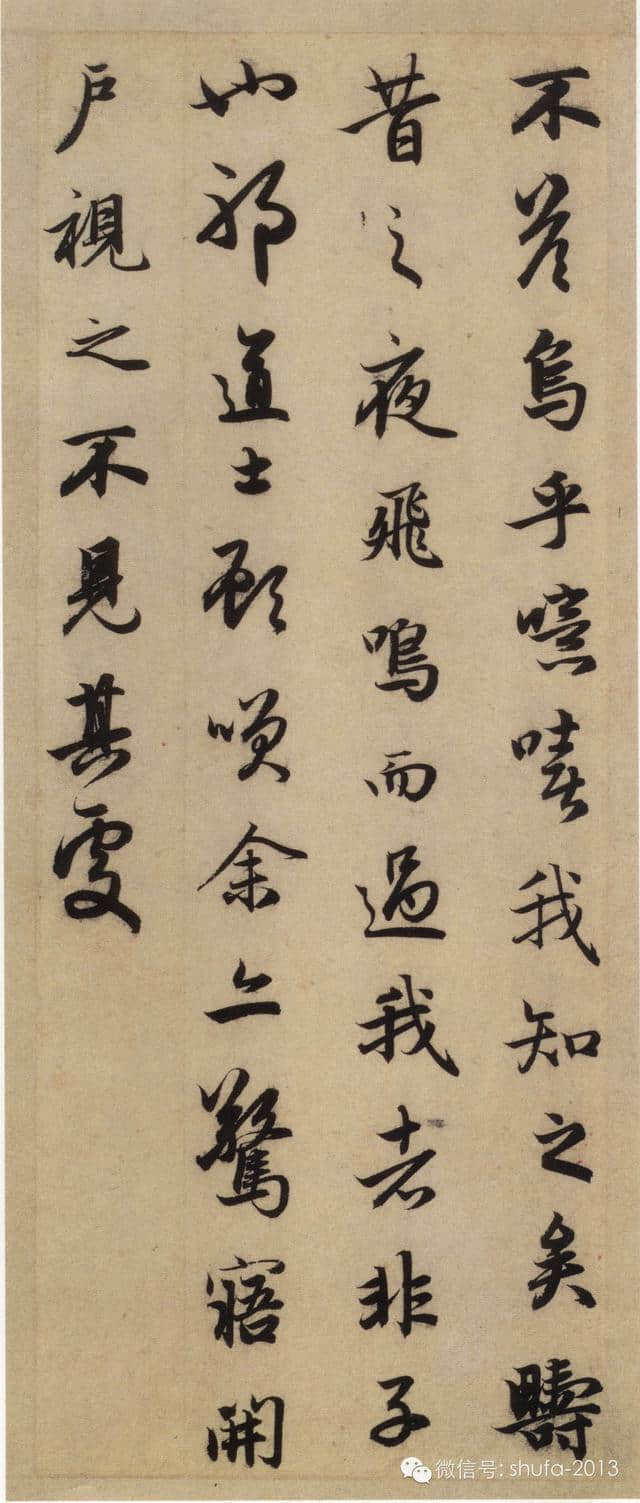 不荅烏乎噫嘻我知之矣疇
昔之夜飛鳴而過我者非子
也耶道士顧唉余亦驚寤開
戶視之不見其處
微信号: shufa-2013